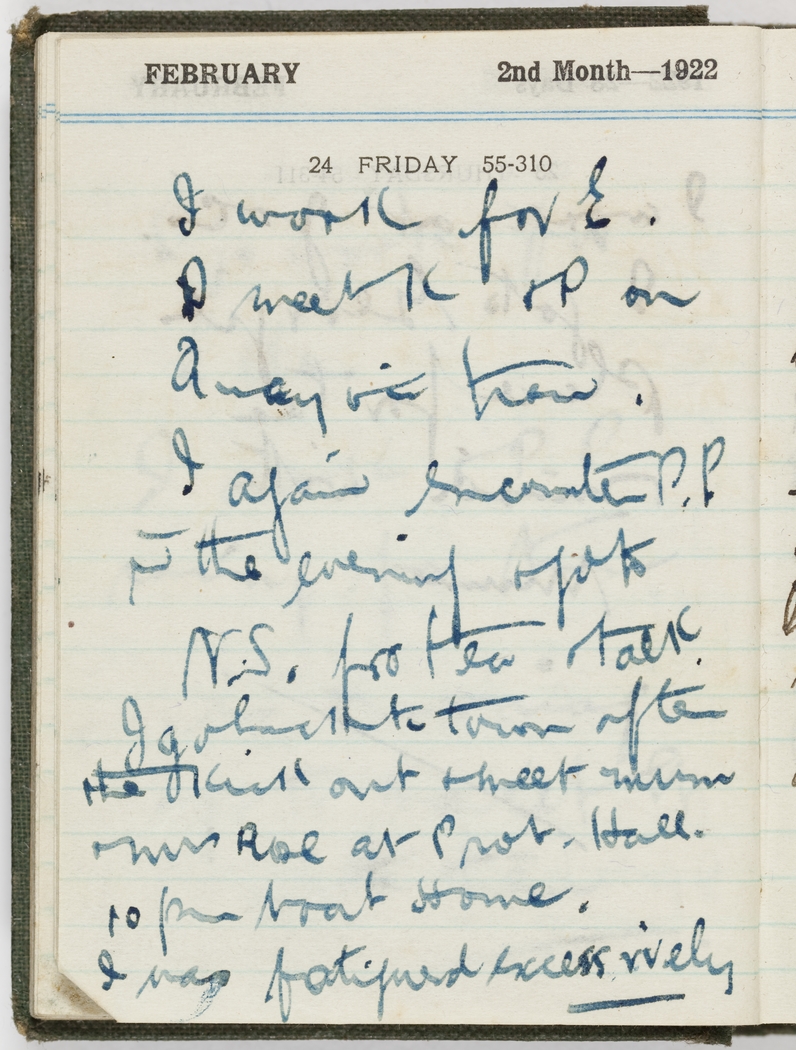 FEBRUARY 2nd Month—1922
24 FRIDAY 55-310
I work for E.
I meet K + P on
way via tram.
I again encounter P.P
in the evening + go to
N.S. for tea + talk.
I go back to town after
the kick out + meet mum
+ mrs Roe at Prot. Hall.
10 pm boat Home.
I was fatigued excessively